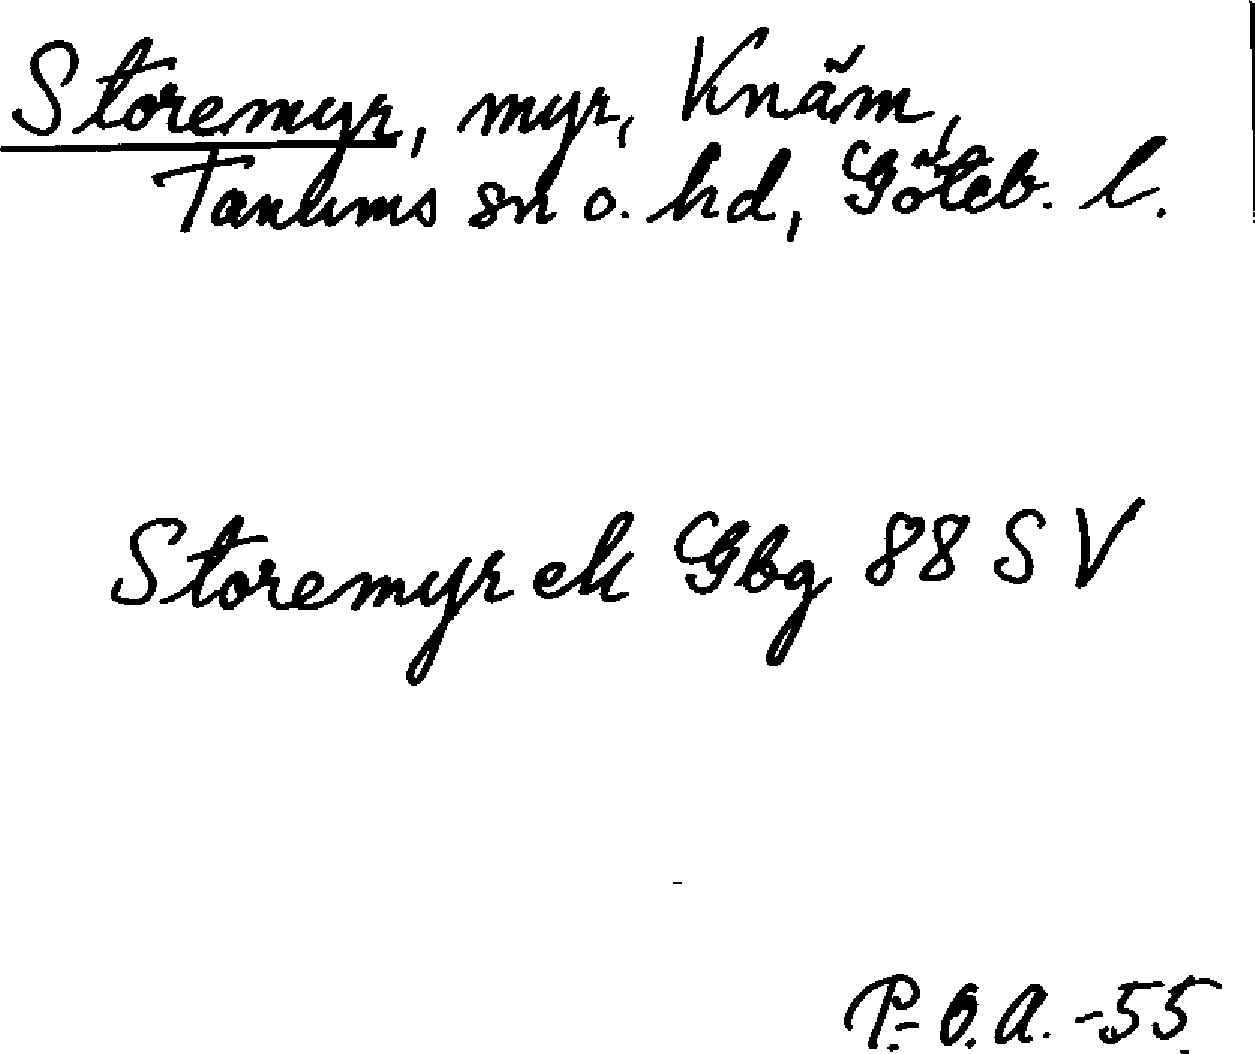 Storemyr, myr, Knäm,
Tanums sn o. hd, Göteb. l.
Storemyr ek Gbg 88 SV
P.-O.A. -55